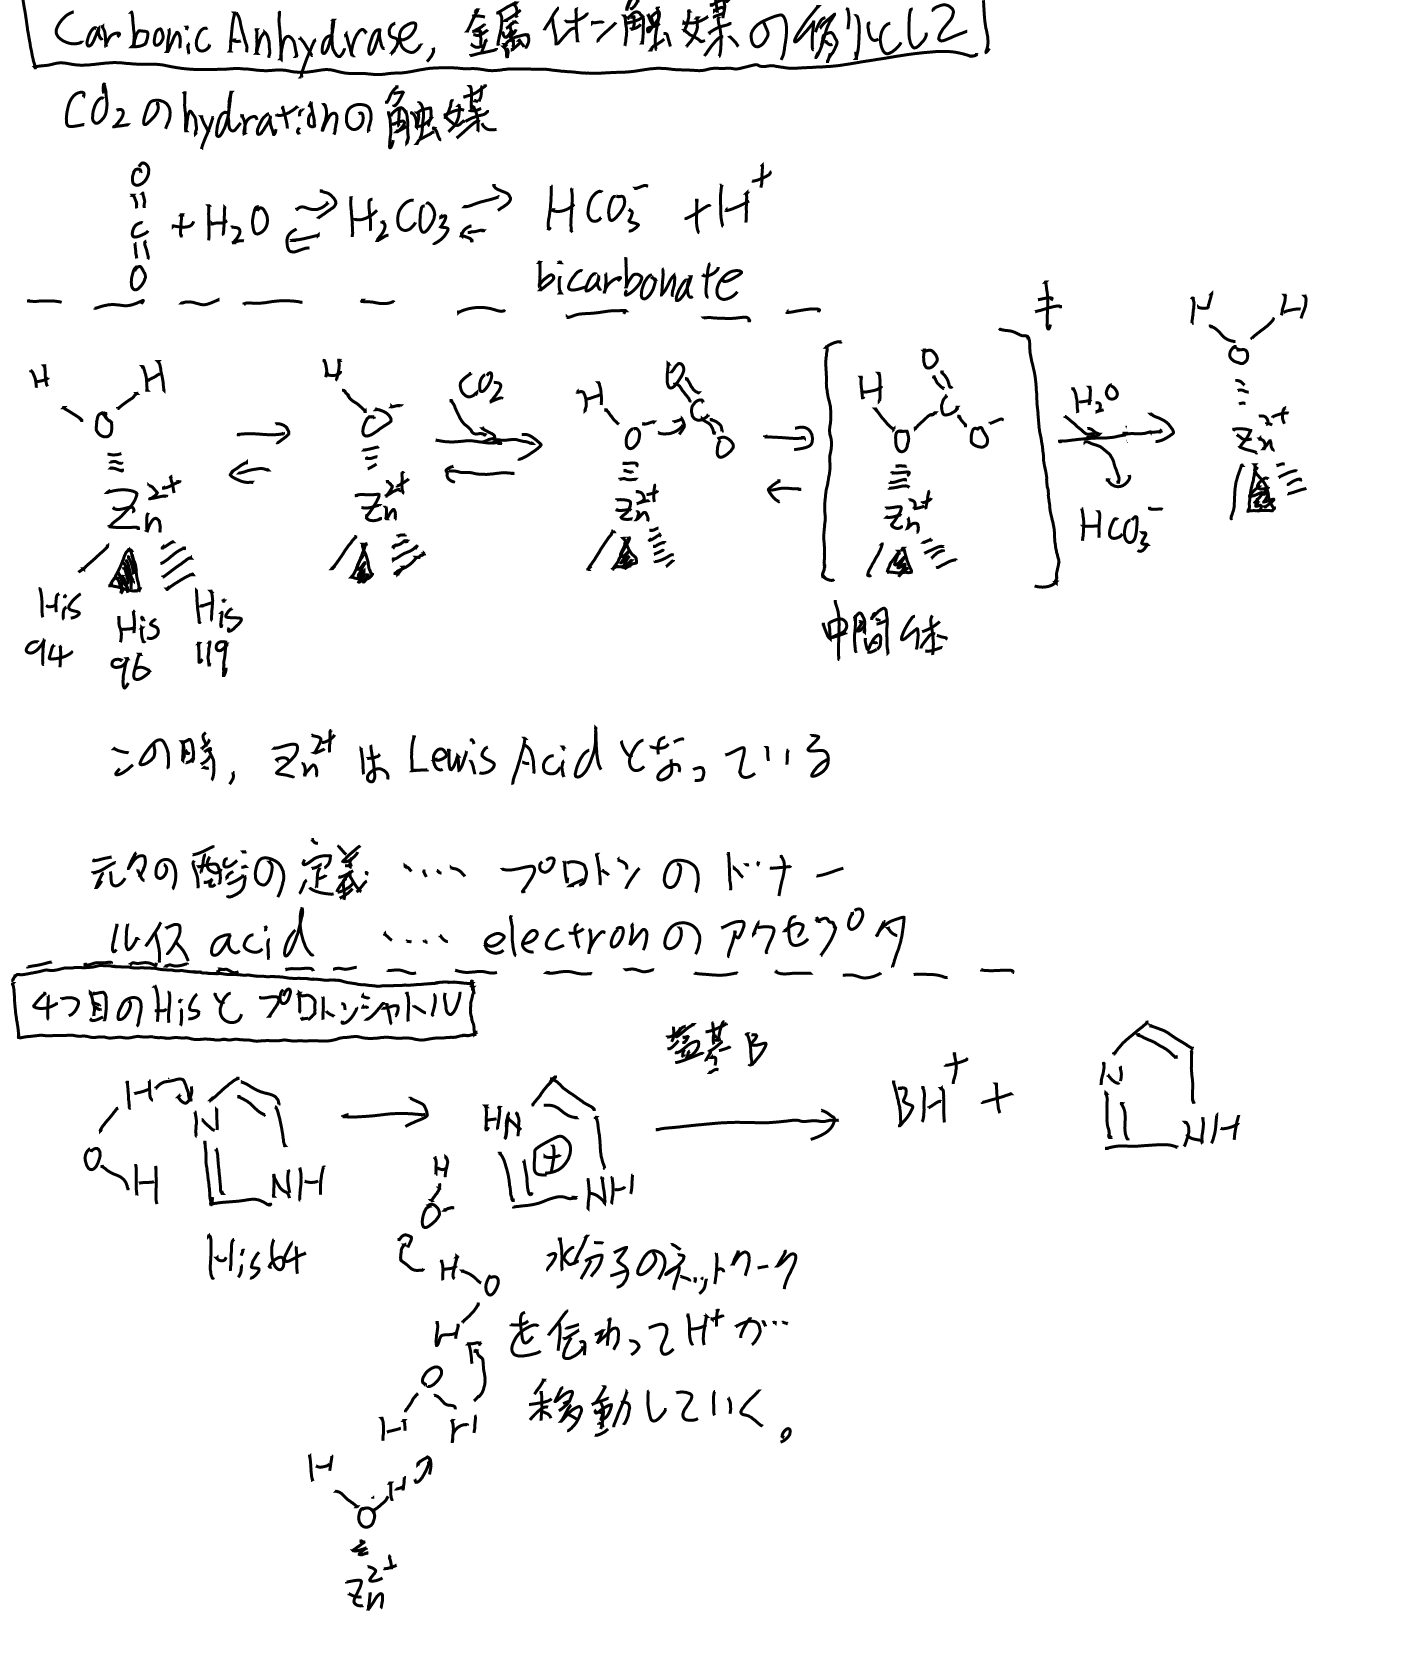 Carbonic Anhydrase, 金属イオン触媒の例として
CO2のhydrationの触媒
O=C=O + H2O ⇌ H2CO3 ⇌ HCO3- + H+
bicarbonate
H H O Zn2+ His 94 His 96 His 119
H O- Zn2+
CO2
H O- C O O Zn2+
H O C O O- Zn2+ ‡
中間体
H2O
HCO3-
H H O Zn2+
この時, Zn2+は Lewis Acid となっている
元々の酸の定義 ‥‥ プロトンのドナー
ルイス acid ‥‥ electronのアクセプタ
4つ目のHisとプロトンシャトル
H O H N NH
His64
HN + NH
塩基 B
BH+ + N NH
H O-
H O H
H O H
H O H Zn2+
水分子のネットワーク
を伝わってH+が…
移動していく。